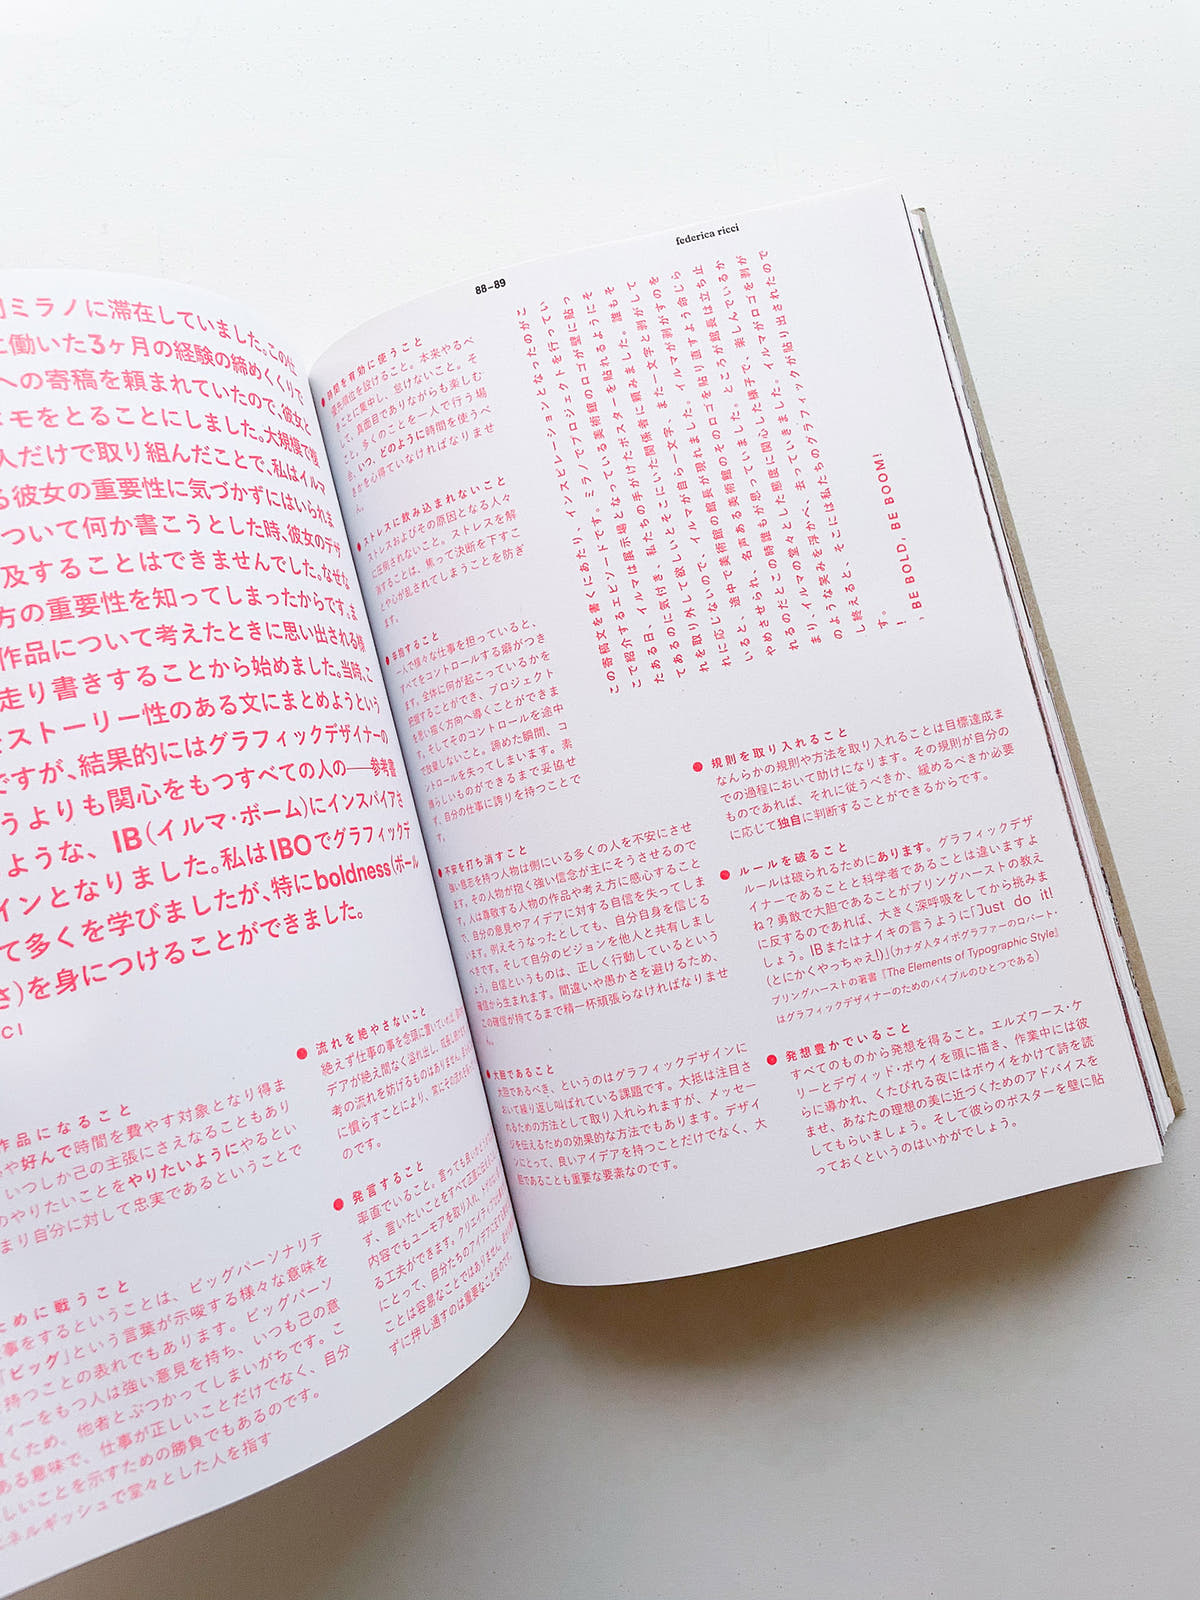 月ミラノに滞在していました。この仕
に働いた3ヶ月の経験の締めくくりで
への寄稿を頼まれていたので、彼女と
メモをとることにしました。大規模で複
人だけで取り組んだことで、私はイルマ
る彼女の重要性に気づかずにはいられま
ついて何か書こうとした時、彼女のデザ
及することはできませんでした。なぜな
方の重要性を知ってしまったからです。ま
作品について考えたときに思い出される様
走り書きすることから始めました。当時、こ
をストーリー性のある文にまとめようという
ですが、結果的にはグラフィックデザイナーの
うよりも関心をもつすべての人の──参考書
ような、IB(イルマ・ボーム)にインスパイアさ
インとなりました。私はIBOでグラフィックデ
て多くを学びましたが、特にboldness(ボール
さ)を身につけることができました。
CCI
作品になること
や好んで時間を費やす対象となり得ま
いつしか己の主張にさえなることもあり
のやりたいことをやりたいようにやるとい
まり自分に対して忠実であるということで
ために戦うこと
事をするということは、ビッグパーソナリテ
「ビッグ」という言葉が示唆する様々な意味を
持つことの表れでもあります。ビッグパーソ
ィーをもつ人は強い意見を持ち、いつも己の意
貫くため、他者とぶつかってしまいがちです。こ
ある意味で、仕事が正しいことだけでなく、自分
しいことを示すための勝負でもあるのです。
エネルギッシュで堂々とした人を指す
流れを絶やさないこと
絶えず仕事の事を念頭に置いていれば、
デアが絶え間なく溢れ出し、
考の流れを妨げるものはありません。
に慣らすことにより、常にその流れを
のです。
発言すること
率直でいること。言っても良いか
ず、言いたいことをすべて正直に伝え
内容でもユーモアを取り入れ、
る工夫ができます。クリエイティブな
にとって、自分たちのアイデアは
ことは容易なことではありません。
ずに押し通すのは重要なことなのです。
88–89
federica ricci
時間を有効に使うこと
優先順位を設けること。本来やるべ
きことに集中し、怠けないこと。そ
して、真面目でありながらも楽しむ
こと。多くのことを一人で行う場
合、いつ、どのように時間を使うべ
きかを心得ていなければなりませ
ん。
ストレスに飲み込まれないこと
ストレスおよびその原因となる人々
に圧倒されないこと。ストレスを解
消することは、焦って決断を下すこ
とや心が乱されてしまうことを防ぎ
ます。
一人で様々な仕事を担っていると、
すべてをコントロールする癖がつき
ます。全体に何が起こっているかを
把握することができ、プロジェクト
を思い描く方向へ導くことができま
す。そしてそのコントロールを途中
で放棄しないこと。諦めた瞬間、コ
ントロールを失ってしまいます。素
晴らしいものができるまで妥協せ
ず、自分の仕事に誇りを持つことで
す。
不安を打ち消すこと
強い意志を持つ人物は側にいる多くの人を不安にさせ
ます。その人物が抱く強い信念が主にそうさせるので
す。人は尊敬する人物の作品や考え方に感心すること
で、自分の意見やアイデアに対する自信を失ってしま
います。例えそうなったとしても、自分自身を信じる
べきです。そして自分のビジョンを他人と共有しまし
ょう。自信というものは、正しく行動しているという
確信から生まれます。間違いや愚かさを避けるため、
この確信が持てるまで精一杯頑張らなければなりませ
ん。
大胆であること
大胆であるべき、というのはグラフィックデザインに
おいて繰り返し叫ばれている課題です。大抵は注目さ
れるための方法として取り入れられますが、メッセー
ジを伝えるための効果的な方法でもあります。デザイ
ンにとって、良いアイデアを持つことだけでなく、大
胆であることも重要な要素なのです。
この寄稿文を書くにあたり、インスピレーションとなったのがこ
こで紹介するエピソードです。ミラノでプロジェクトを行ってい
たある日、イルマは展示場となっている美術館のロゴが壁に貼っ
てあるのに気付き、私たちの手がけたポスターを貼れるようにそ
れを取り外して欲しいとそこにいた関係者に頼みました。誰もそ
れに応じないので、イルマが自ら一文字、また一文字と剥がして
いると、途中で美術館の館長が現れました。イルマが剥がすのを
やめさせられ、名声ある美術館のそのロゴを貼り直すよう命じら
れるのだとこの時誰もが思っていました。ところが館長は立ち止
まり、イルマの堂々とした態度に関心した様子で、楽しんでいるか
のような笑みを浮かべ、去っていきました。イルマがロゴを剥が
し終えると、そこには私たちのグラフィックが貼り出されたので
す。
！
, BE BOLD, BE BOOM!
規則を取り入れること
なんらかの規則や方法を取り入れることは目標達成ま
での過程において助けになります。その規則が自分の
ものであれば、それに従うべきか、緩めるべきか必要
に応じて独自に判断することができるからです。
ルールを破ること
ルールは破られるためにあります。グラフィックデザ
イナーであることと科学者であることは違いますよ
ね？勇敢で大胆であることがブリングハーストの教え
に反するのであれば、大きく深呼吸をしてから挑みま
しょう。IBまたはナイキの言うように「Just do it!
(とにかくやっちゃえ!)」(カナダ人タイポグラファーのロバート・
ブリングハーストの著書『The Elements of Typographic Style』
はグラフィックデザイナーのためのバイブルのひとつである)
発想豊かでいること
すべてのものから発想を得ること。エルズワース・ケ
リーとデヴィッド・ボウイを頭に描き、作業中には彼
らに導かれ、くたびれる夜にはボウイをかけて詩を読
ませ、あなたの理想の美に近づくためのアドバイスを
してもらいましょう。そして彼らのポスターを壁に貼
っておくというのはいかがでしょう。